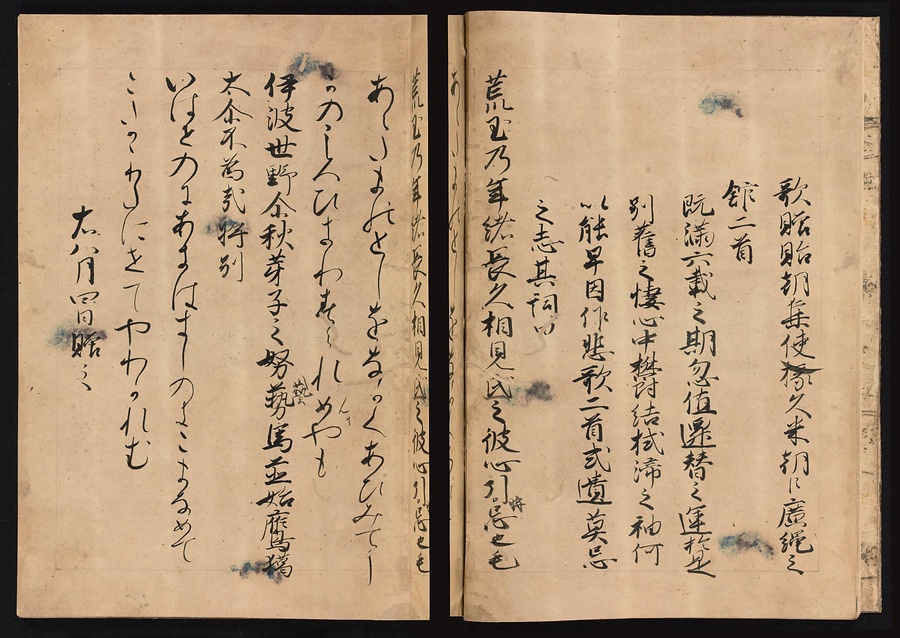 歌貽貽朝集使掾久米朝臣廣縄之
舘二首
既満六載之期忽値遷替之運於是
別舊之悽心中欝結拭渧之袖何
以能旱因作悲歌二首式遺莫忘
之志其詞曰
荒玉乃年緒長久相見氐之彼心引将忘也毛
あらたまのとしをなかくあひみてし
かのこゝろひきわすられめやも
伊波世野尓秋芽子之努藝馬並始鷹獦
太尓不為哉将別
いはせのにあきはきしのきこまなめて
こたかりたにせてやわかれむ
右八月四日貽之